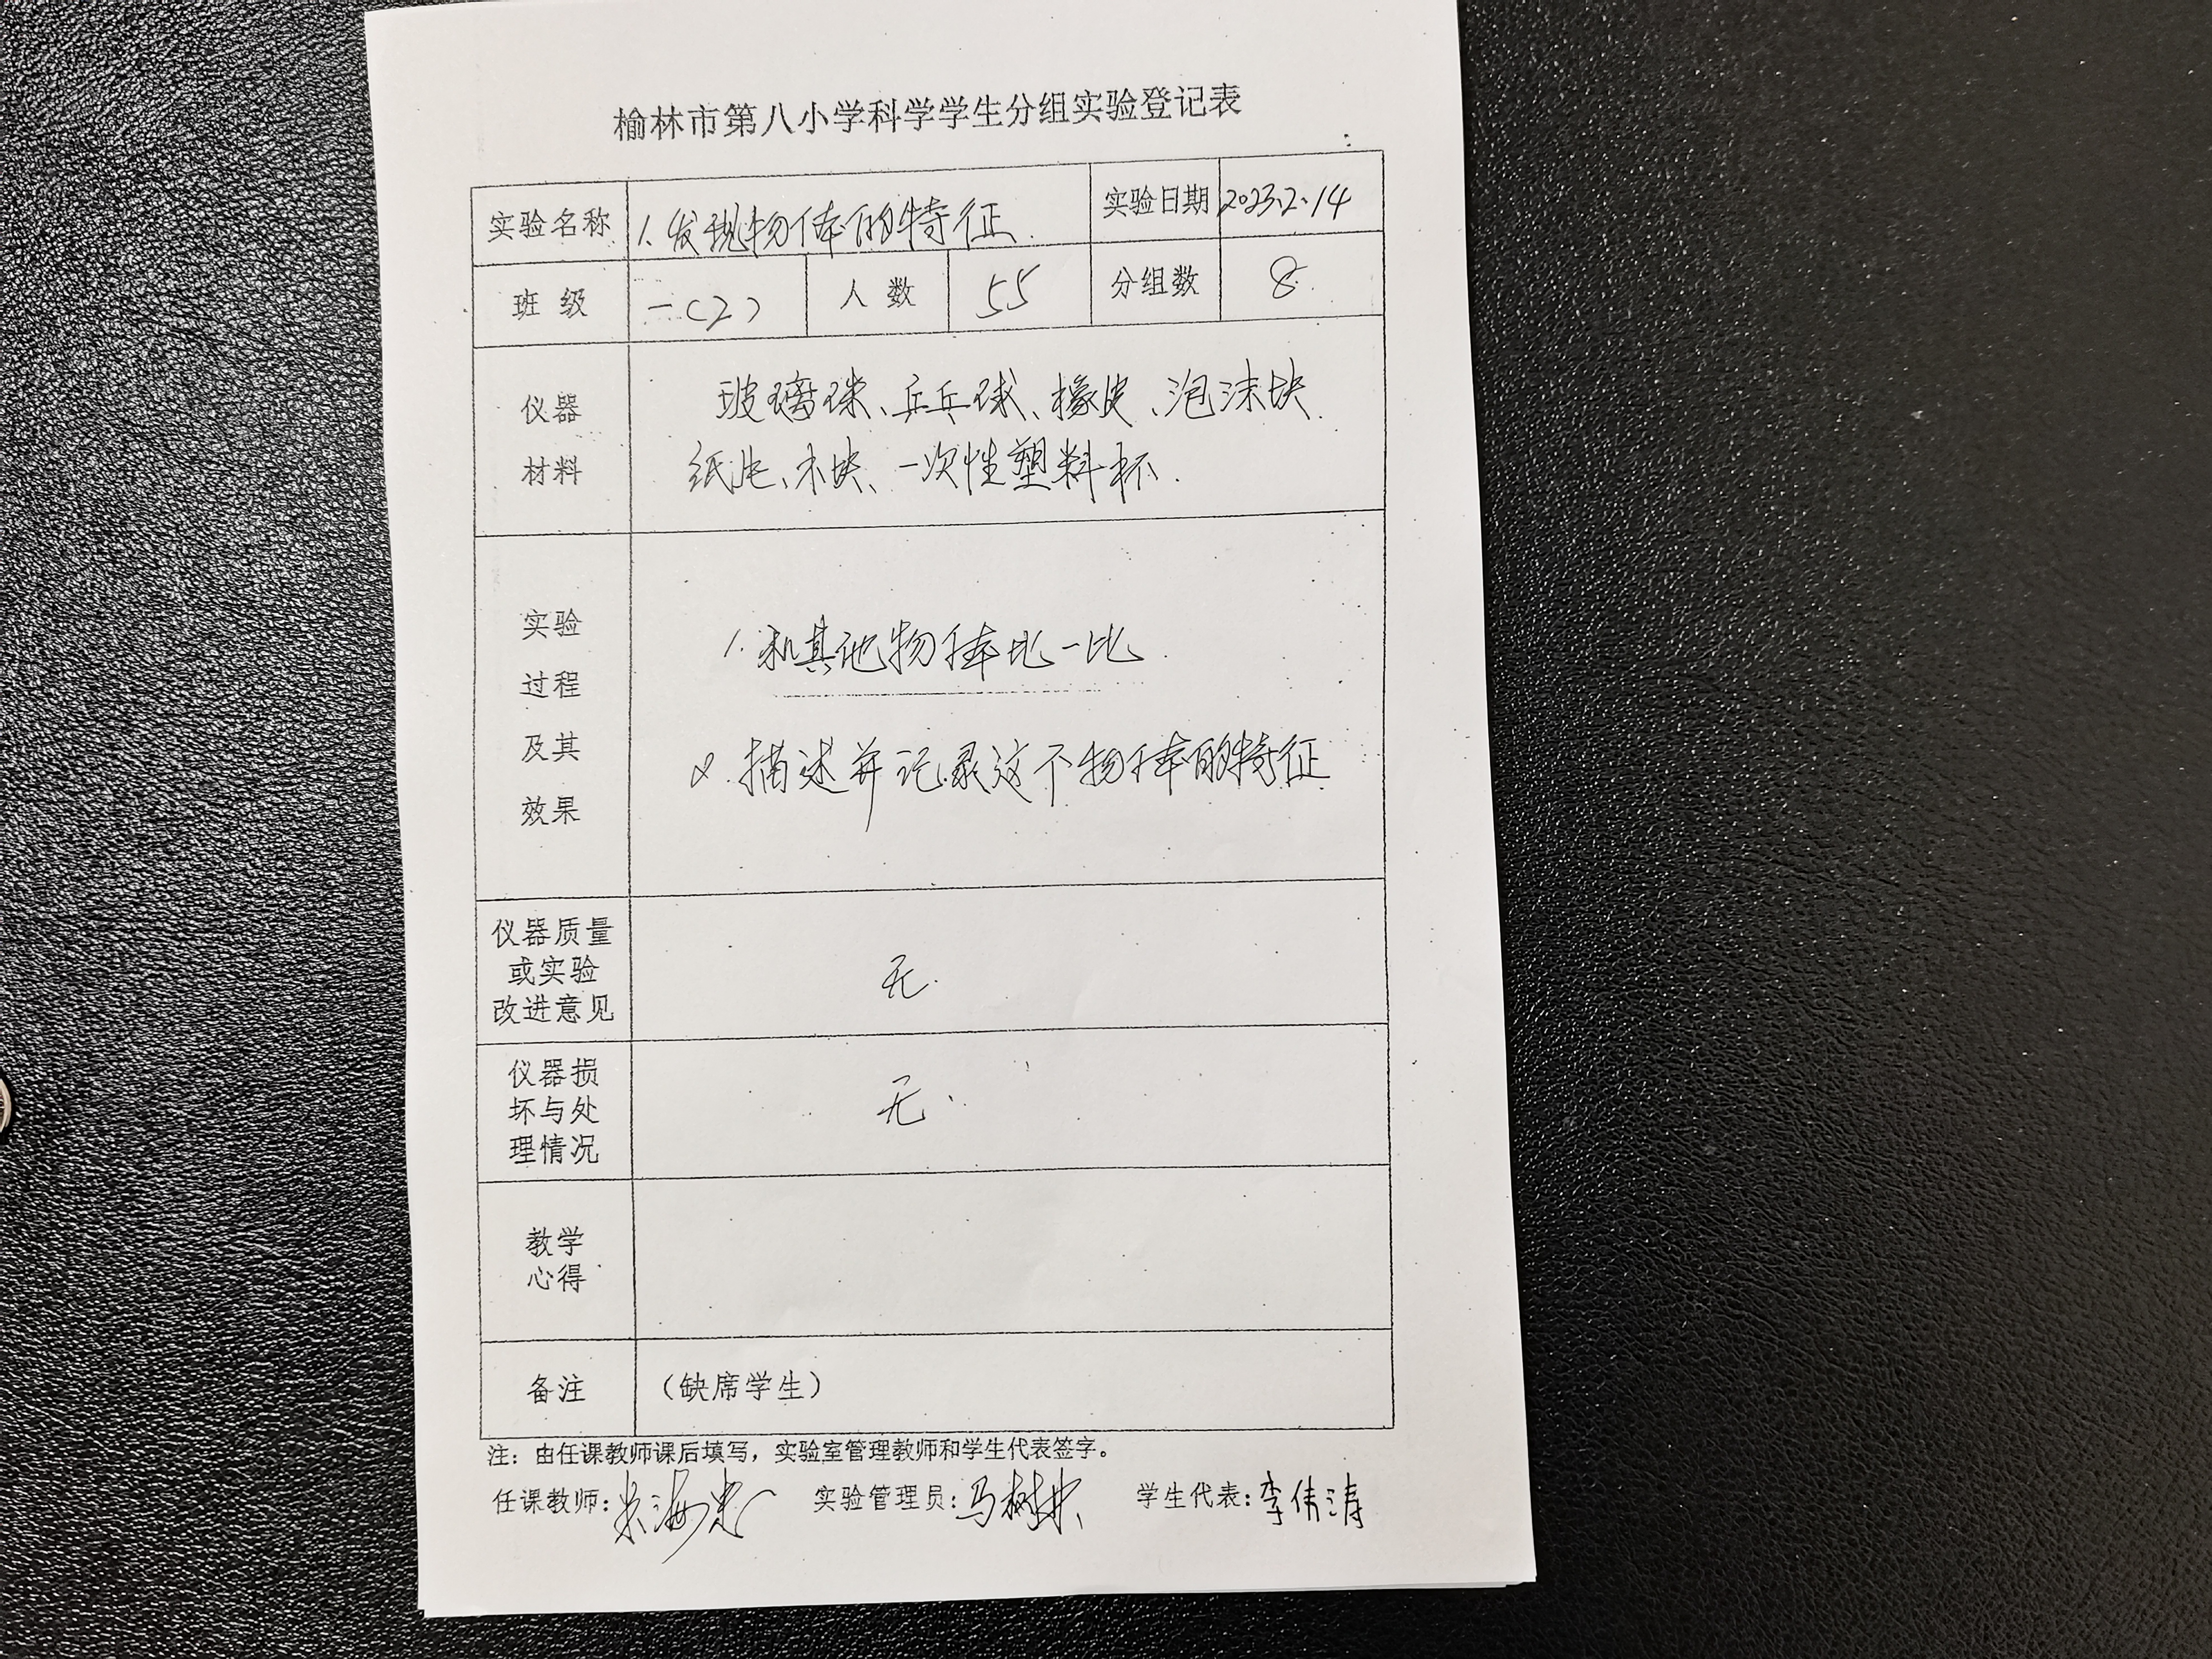 榆林市第八小学科学学生分组实验登记表
实验名称 1.发现物体的特征. 实验日期 2023.2.14
班级 一(2) 人数 55 分组数 8
仪器
材料
玻璃球、乒乓球、橡皮、泡沫块.
纸片、木块、一次性塑料杯.
实验
过程
及其
效果
1.和其他物体比一比.
2.描述并记录这个物体的特征
仪器质量
或实验
改进意见
无.
仪器损
坏与处
理情况
无.
教学
心得
备注 (缺席学生)
注:由任课教师课后填写,实验室管理教师和学生代表签字。
任课教师: 实验管理员: 学生代表:李伟涛